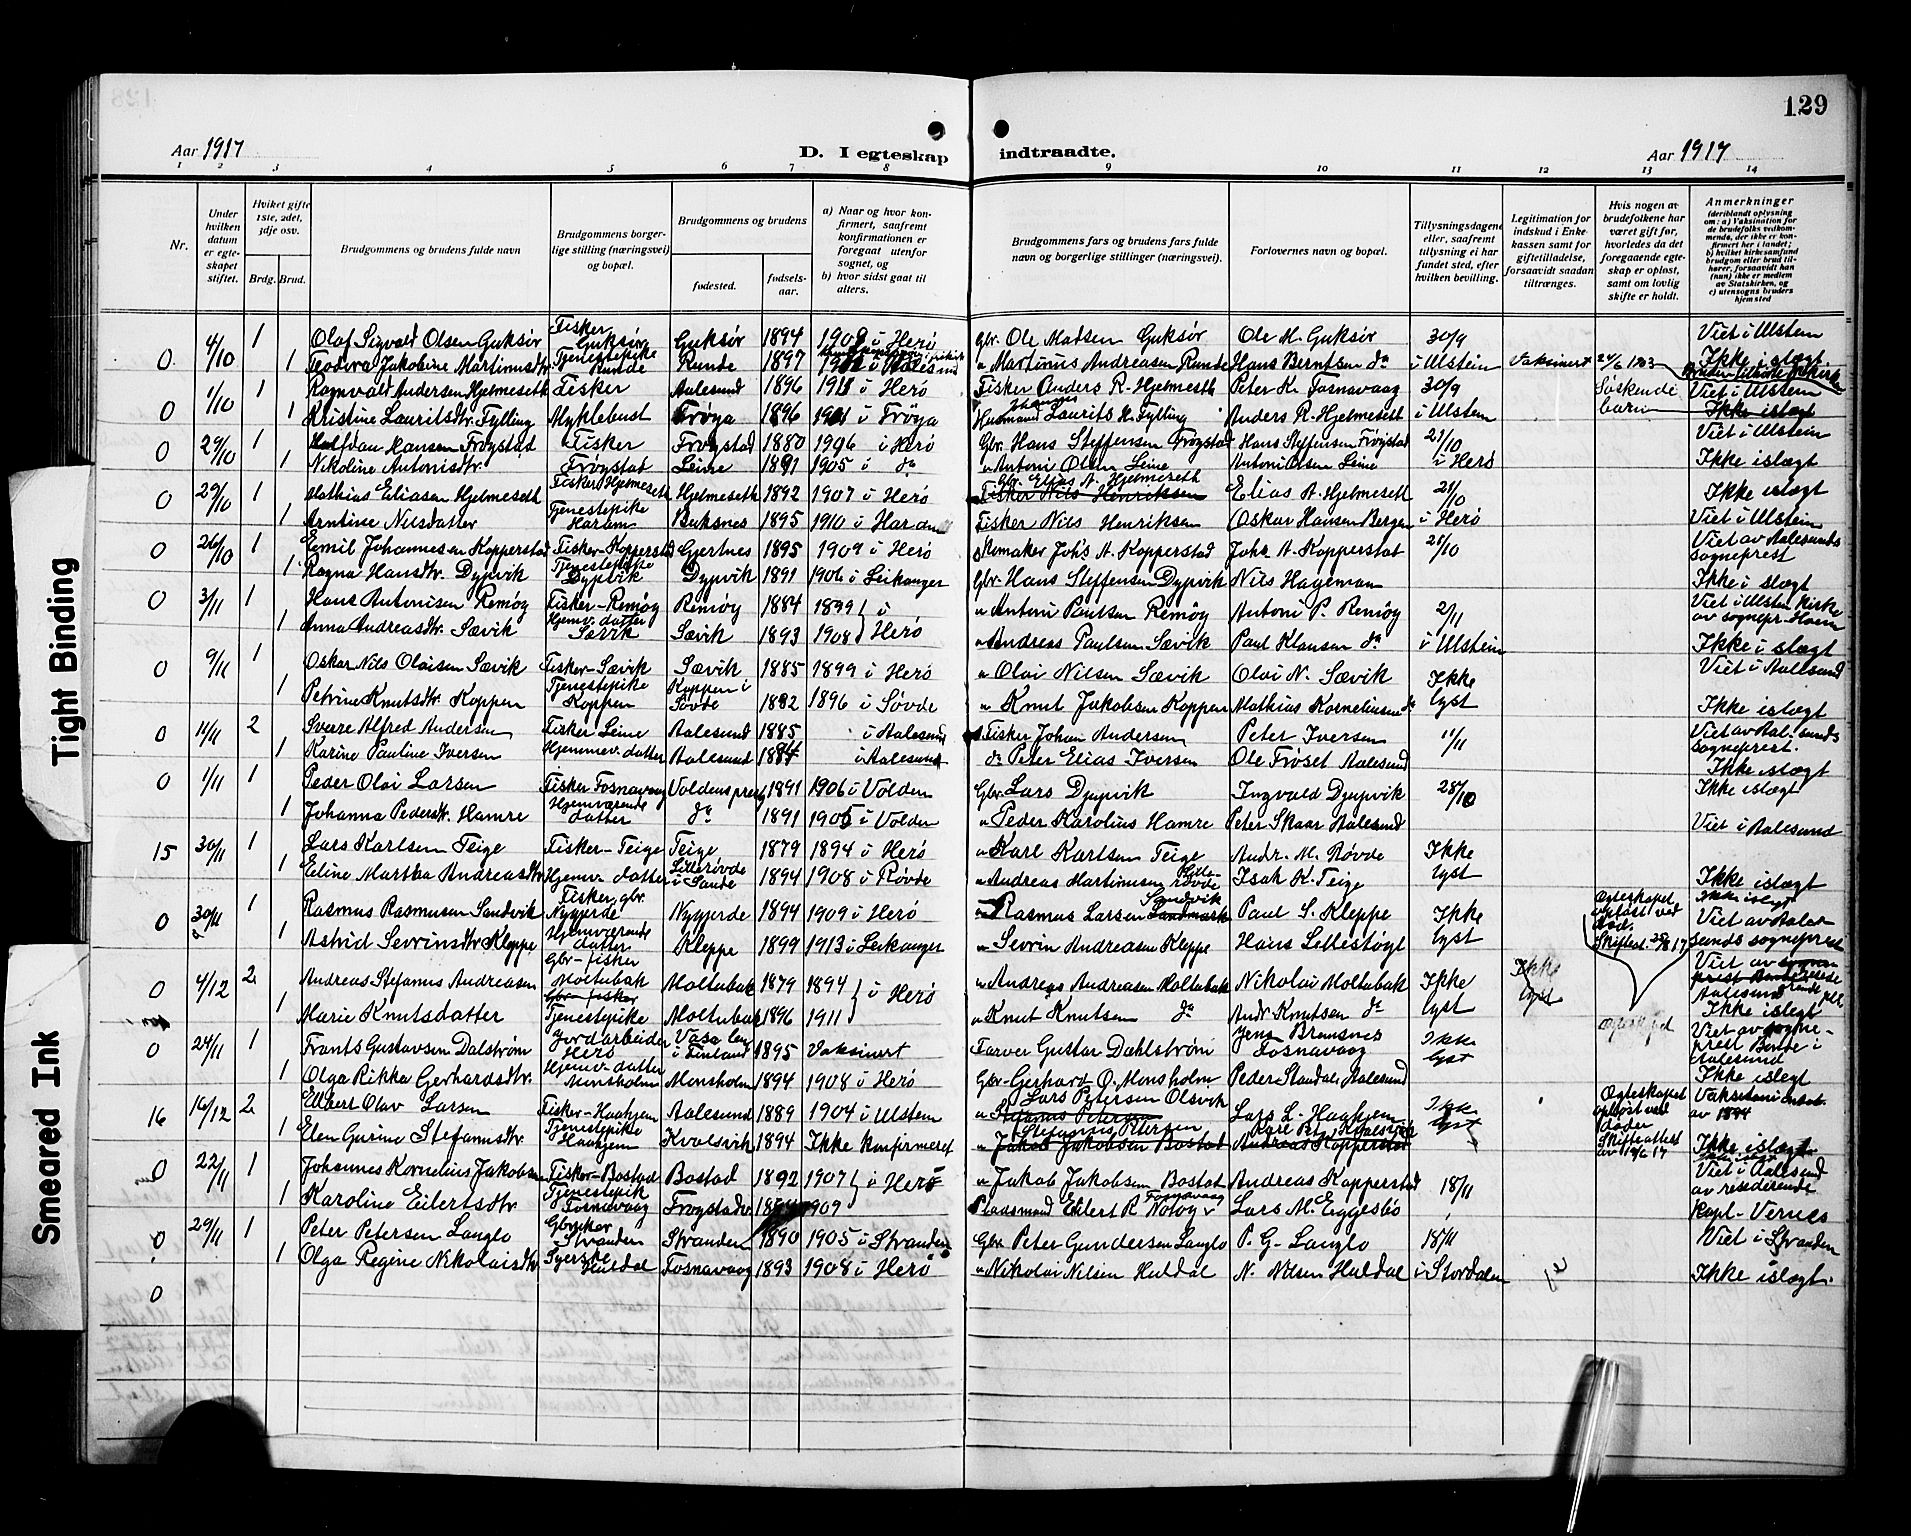 129
Aar 1917
D. I egteskap indtraadte.
Aar 1917
1 2 3 4 5 6 7 8 9 10 11 12 13 14
Nr.
Under hvilken datum er egteskapet stiftet.
Hviket gifte 1ste, 2det, 3dje osv.
Brdg. Brud.
Brudgommens og brudens fulde navn
Brudgommens borgerlige stilling (næringsvei) og bopæl.
Brudgommens og brudens
fødested.
fødselsaar.
a) Naar og hvor konfirmert, saafremt konfirmationen er foregaat utenfor sognet, og
b) hvor sidst gaat til alters.
Brudgommens fars og brudens fars fulde navn og borgerlige stillinger (næringsvei).
Forlovernes navn og bopæl.
Tillysningsdagene eller, saafremt tillysning ei har fundet sted, efter hvilken bevilling.
Legitimation for indskud i Enkekassen samt for giftetilladelse, forsaavidt saadan tiltrænges.
Hvis nogen av brudefolkene har været gift før, hvorledes da det foregaaende egteskap er opløst, samt om lovlig skifte er holdt.
Anmerkninger
(deriblandt oplysning om: a) Vaksination for de brudefolks vedkommende, der ikke er konfirmert her i landet; b) hvilket kirkesamfund brudgom eller brud tilhører, forsaavidt han (hun) ikke er medlem av Statskirken, og c) utensogns bruders hjemsted
4/10 1 Olaf Sigvald Olsen Guksør Fisker Guksør Guksør 1894 1909 i Herø Gbr. Ole Madsen Guksør Ole M. Guksør 30/9 Viet i Ulstein
0 1 Teodora Jakobine Martinusdtr. Tjenestepike Runde Runde 1897 i Aalesund " Martinus Andreasen Runde Hans Berntsen do i Ulstein Vaksinert Ikke i slægt
1/10 1 Ragnvald Andersen Hjelmeseth Fisker Aalesund 1896 1911 i Herø Fisker Anders R. Hjelmeseth Peter K. Fosnavaag 30/9 Søskendebarn Viet i Ulstein
0 1 Kristine Lauritsdtr. Fylling Myklebust Frøya 1896 1911 i Frøya Husmand Johannes Laurits H. Fylling Anders R. Hjelmeseth i Ulstein Ikke islægt
29/10 1 Halfdan Hansen Frøystad Fisker Frøystad 1880 1906 i Herø Gbr. Hans Steffensen Frøystad Hans Steffensen Frøystad 21/10 Viet i Ulstein
0 1 Nikoline Antonisdtr. Frøystad Leine 1891 1905 i do " Antoni Olsen Leine Antoni Olsen Leine i Herø Ikke islægt
29/10 1 Mathias Eliasen Hjelmeseth Fisker Hjelmeseth Hjelmeseth 1892 1907 i Herø Gbr. Elias A. Hjelmeseth Fisker Nils Henriksen Elias A. Hjelmeseth 21/10 Ikke i slægt
0 1 Arntine Nilsdatter Tjenestepike Haram Buksnes 1895 1910 i Haram Fisker Nils Henriksen Oskar Hansen Bergen i Herø Viet i Ulstein
26/10 1 Emil Johannesen Kopperstad Fisker-Kopperstad Gjertnes 1895 1909 i Herø Skomaker Johs A. Kopperstad Johs A. Kopperstad 21/10 Viet av Aalesunds sogneprest
0 1 Ragna Hansdtr. Dypvik Tjenestepike Dypvik Dypvik 1891 1906 i Leikanger Gbr. Hans Steffensen Dypvik Nils Hageman Ikke i slægt
0 3/11 1 Hans Antonisen Remøy Fisker-Remøy Remøy 1884 1899 i Herø " Antoni Paulsen Remøy Antoni P. Remøy 2/11 Viet i Ulsten kirke av sognepr.
1 Anna Andreasdtr. Sævik Hjemv. datter Sævik Sævik 1893 1908 " Andreas Paulsen Sævik Paul Klausen do i Ulstein Ikke i slægt
0 9/11 1 Oskar Nils Olaisen Sævik Fisker-Sævik Sævik 1885 1899 i Herø " Olai Nilsen Sævik Olai N. Sævik Ikke lyst Viet i Aalesund
1 Petrine Knutsdtr. Koppen Tjenestepike Koppen Koppen i Søvde 1882 1896 i Søvde " Knut Jakobsen Koppen Mathias Korneliussen do Ikke islægt
0 11/11 2 Sverre Alfred Andersen Fisker Leine Aalesund 1885 i Aalesund Fisker Johan Andersen Peter Iversen 11/11 Viet av Aalesunds sogneprest.
1 Karine Pauline Iversen Hjemmev. datter Aalesund 1884 i Aalesund do Peter Elias Iversen Ole Frøset Aalesund Ikke islægt
0 1/11 1 Peder Olai Larsen Fisker Fosnavaag Voldens prestg 1891 1906 i Volden Gbr. Lars Djupvik Ingvald Djupvik 28/10 Ikke islægt
1 Johanna Pedersdtr. Hamre Hjemværende datter do 1891 1905 i Volden " Peder Karolius Hamre Peter Skaar Aalesund Viet i Aalesund
15 30/11 1 Lars Karlsen Teige Fisker-Teige Teige 1879 1894 i Herø " Karl Karlsen Teige Andr. M. Røvde Ikke lyst
1 Eline Martha Andreasdtr Hjemv. datter Lillerøvde i Sande 1894 1908 i Røvde " Andreas Martinusen Lillerøvde Isak K. Teige Ikke islægt
0 30/11 1 Rasmus Rasmusen Sandvik Fisker gbr. Nygjerde Nygjerde 1894 1909 i Herø " Rasmus Larsen Sandvik Landmark Paul S. Kleppe Ikke lyst Ikke islegt Viet av Aalesunds sogneprest
1 Astrid Sevrinsdtr Kleppe Hjemværende datter Kleppe 1899 1913 i Leikanger " Sevrin Andreasen Kleppe Hans Lillestøyl Ægteskapet opløst ved død. Skifteat.
0 4/12 2 Andreas Stefanus Andreasen Gbr-fisker Moltubak Moltubak 1879 1894 i Herø " Andreas Andreasen Moltubak Nikolai Moltubak Ikke lyst Ikke lyst Viet av Aalesund
1 Marie Knutsdatter Gbr-fisker Tjenestepike Moltubak 1896 1911 " Knut Knutsen do Andr Knutsen do Ikke i slegt
0 24/11 1 Frants Gustavsen Dalstrøm Jordarbeider Herø Vasa len i Finland 1895 Vaksinert Farver Gustav Dahlstrøm Jens Bransnes Fosnavaag Ikke lyst Viet av sogneprest Bonde i Aalesund
1 Olga Rikka Gerhardsdtr. Hjemv. datter Monsholm Monsholm 1894 1908 i Herø Gbr-Gerhard O. Monsholm Peder Standal Aalesund Ikke islegt
16 16/12 2 Elbert Olav Larsen Fisker-Haahjem Aalesund 1889 1904 i Ulstein Lars Petersen Olsvik Stefanus Petersen Lars L. Haahjem Ikke lyst Ægteskapet opløst ved døden Skifteattest av 19/6 17 av 1894
1 Elen Gurine Stefanusdtr. Tjenestepike Haahjem Kvalsvik 1894 Ikke konfirmeret Stefanus Petersen Jakob Jakobsen Bostad Andreas Kopperstad Ikke islægt
0 22/11 1 Johannes Kornelius Jakobsen Fisker-Bostad Bostad 1892 1907 i Herø " Jakob Jakobsen Bostad Andreas Kopperstad 18/11 Viet i Aalesund av resederende
1 Karoline Eilertsdtr. Tjenestepik Fosnavaag Frøystadv. 1909 Pladsmand Eilert R Notøy Fosnavaag Lars M. Eggesbø Kapl- Vernes
0 29/11 1 Peter Petersen Langlo Gbruker Stranden Stranden 1890 1905 i Stranden Gbr Peter Gundersen Langlo P. G. Langlo 18/11 Viet i Stranden
1 Olga Regine Nikolaisdtr Syerske Huldal Fosnavaag 1893 1908 i Herø " Nikolai Nilsen Huldal N. Nilsen Huldal i Stordalen Ikke islægt.
0
Tight Binding
Smeared Ink